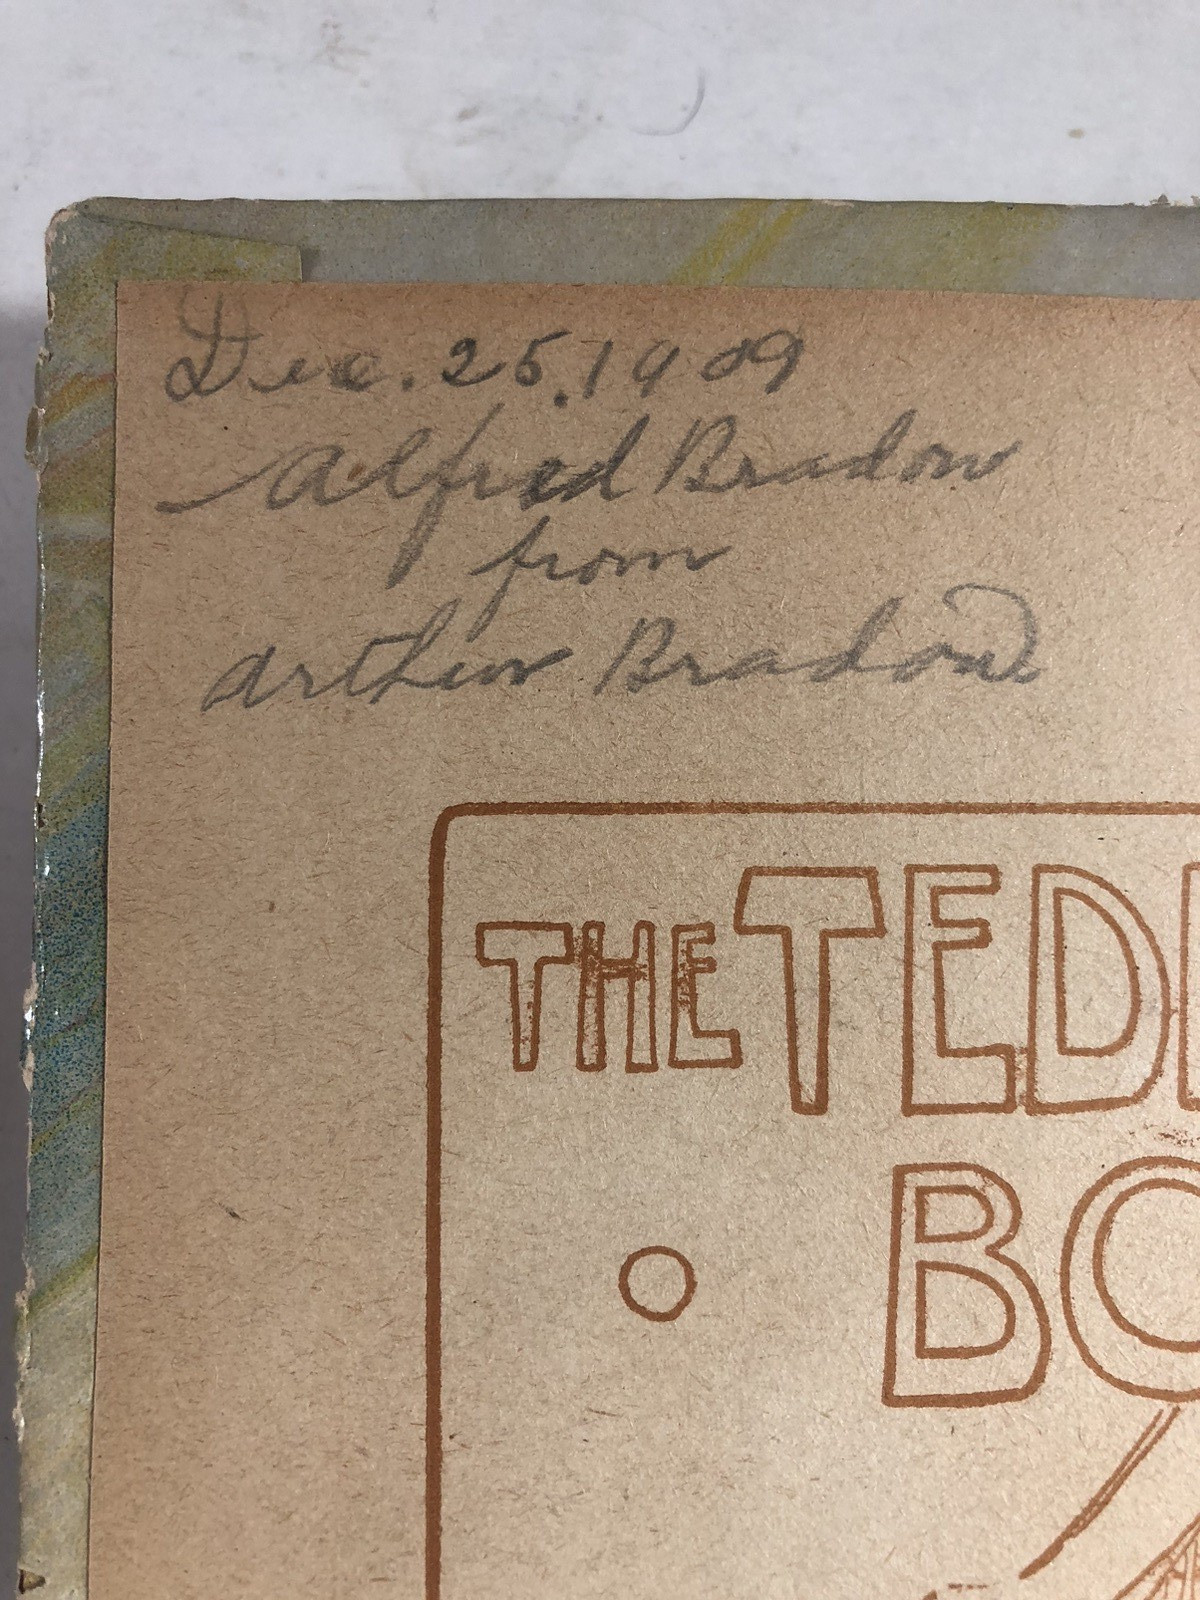 Dec. 25. 1909
Alfred Bradow
from
Arthur Bradow
THE TED
BO